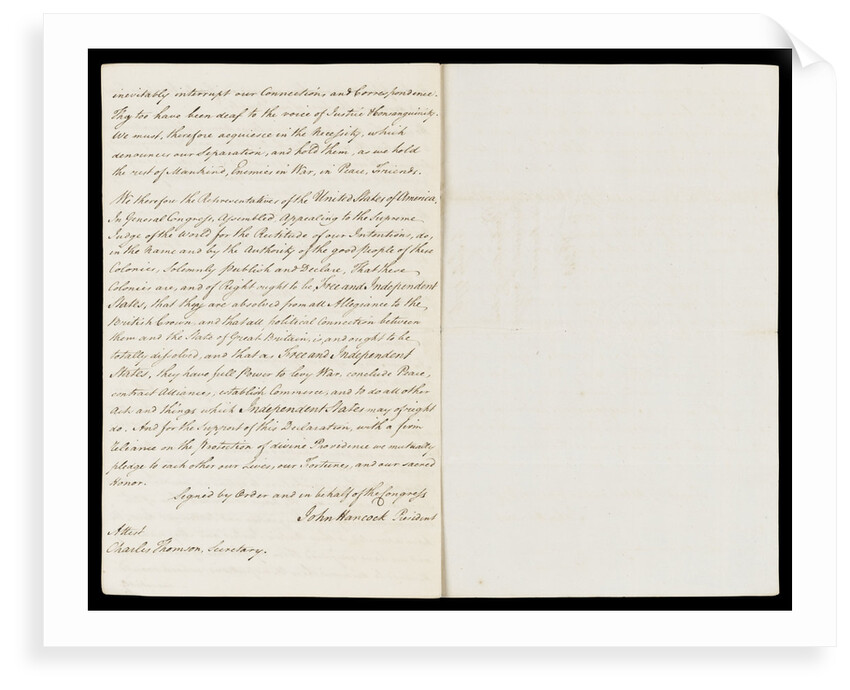 inevitably interrupt our Connections and Correspondence.
They too have been deaf to the voice of Justice & Consanguinity.
We must, therefore acquiesce in the Necessity, which
denounces our Separation, and hold them, as we hold
the rest of Mankind, Enemies in War, in Peace, Friends.
We therefore the Representatives of the United States of America,
In General Congress, Assembled, Appealing to the Supreme
Judge of the World for the Rectitude of our Intentions, do,
in the Name and by the Authority of the good People of these
Colonies, Solemnly Publish and Declare, That these
Colonies are, and of Right ought to be, Free and Independent
States, that they are absolved from all Allegiance to the
British Crown, and that all political Connection between
them and the State of Great Britain, is, and ought to be
totally dissolved, and that as Free and Independent
States, they have full Power to levy War, conclude Peace,
contract Alliances, establish Commerce, and to do all other
Acts and things which Independent States may of right
do. And for the Support of this Declaration, with a firm
Reliance on the Protection of divine Providence we mutually
pledge to each other our Lives, our Fortunes, and our sacred
Honor.
Signed by Order and in behalf of the Congress
John Hancock President
Attest
Charles Thomson, Secretary.